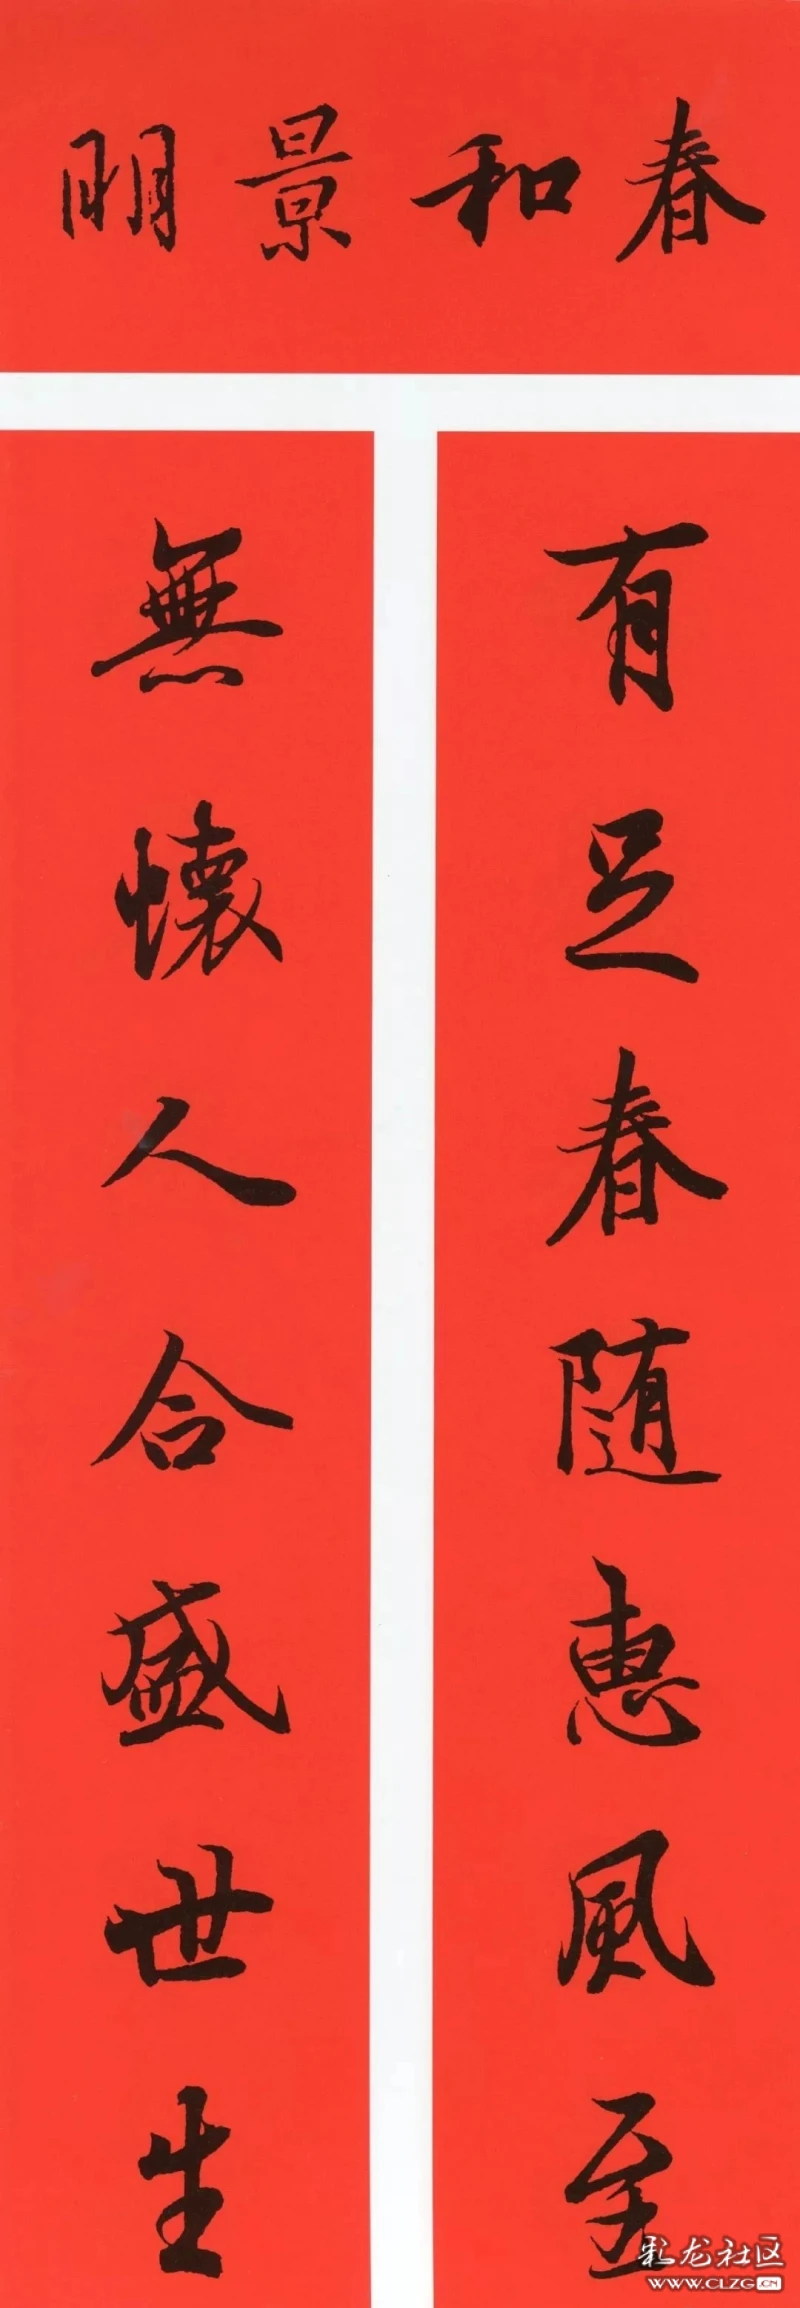 春和景明
有足春随惠風至
無懷人合盛世生
彩龙社区
WWW.CLZG.CN